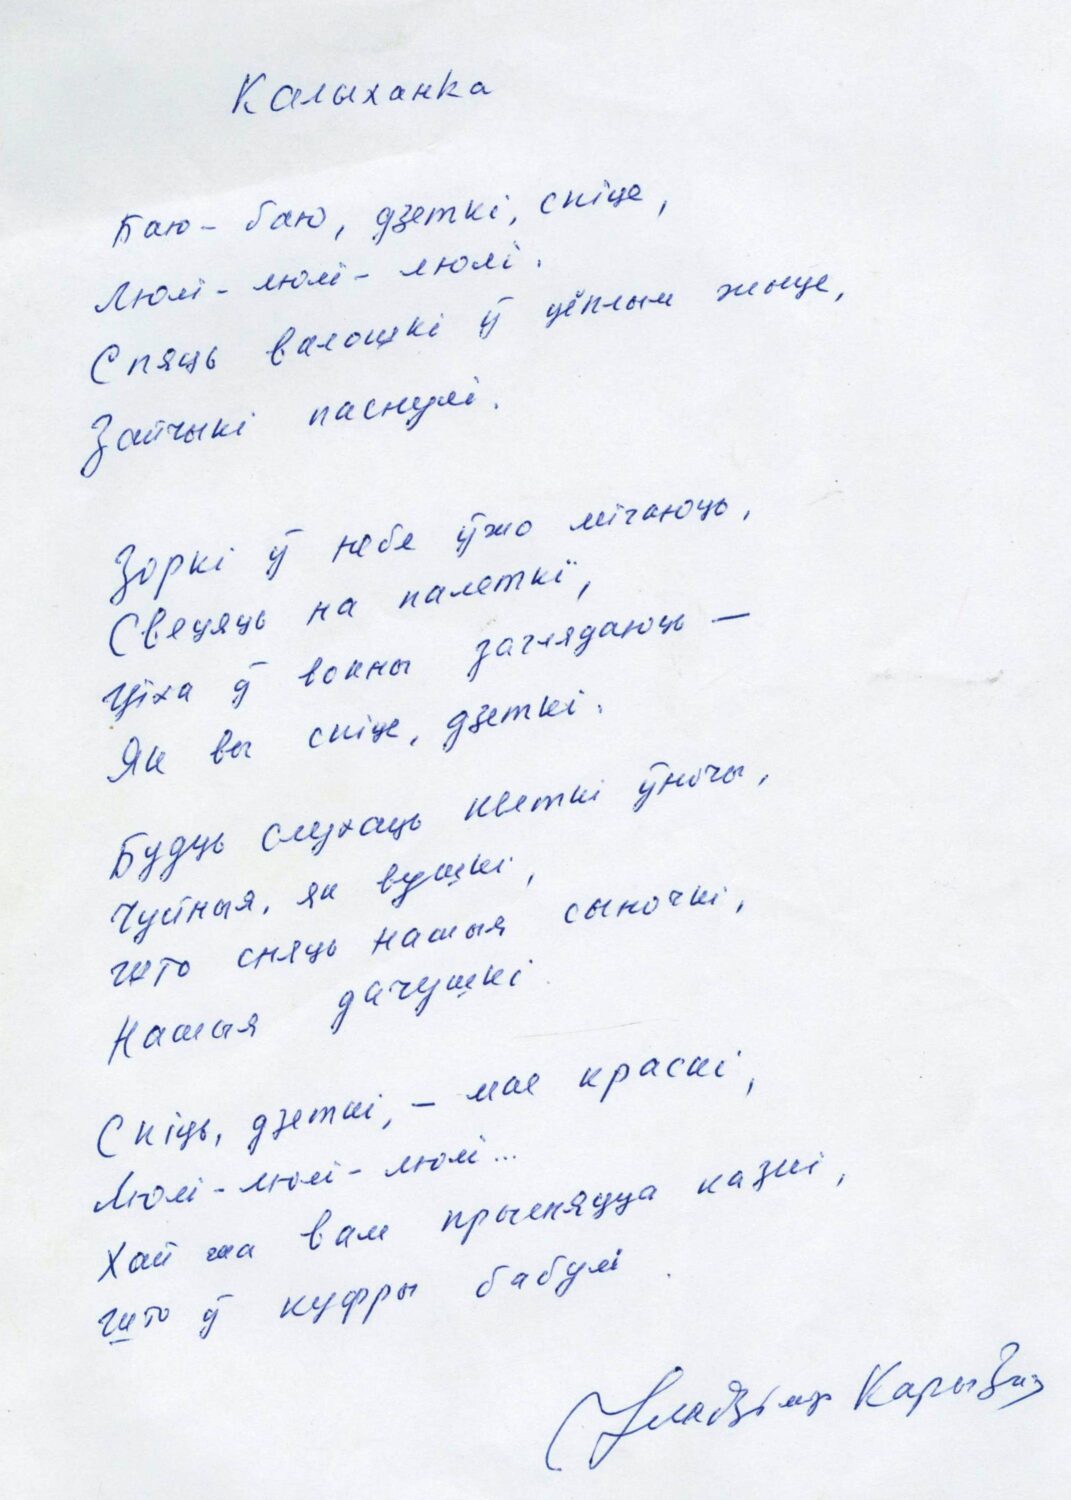 Калыханка
Баю-баю, дзеткі, спіце,
Люлі-люлі-люлі.
Спяць валошкі ў цёплым жыце,
Зайчыкі паснулі.
Зоркі ў небе ўжо мігаюць,
Свецяць на палеткі,
Ціха ў вокны заглядаюць —
Як вы спіце, дзеткі.
Будуць слухаць кветкі ўночы,
Чуйныя, як вушкі,
Што сняць нашыя сыночкі,
Нашыя дачушкі.
Спіць, дзеткі, — мае краскі,
Люлі-люлі-люлі...
Хай жа вам прысняцца казкі,
Што ў куфры бабулі.
Уладзімір Карызна